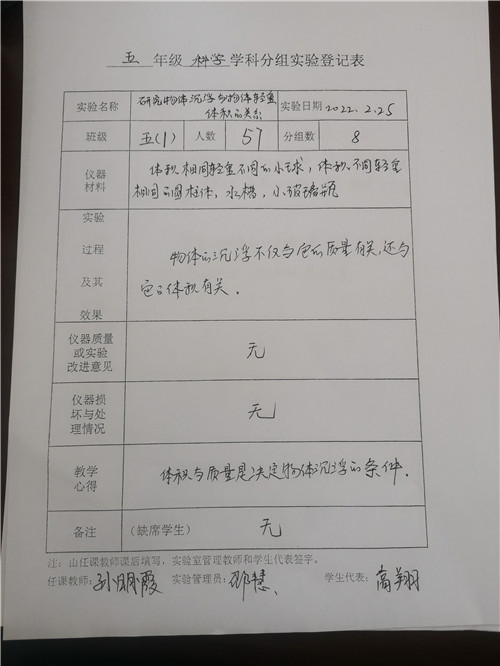 五 年级 科学 学科分组实验登记表
实验名称 研究物体沉浮与物体轻重 实验日期 2022.2.25
体积的关系
班级 五(1) 人数 57 分组数 8
仪器 体积相同轻重不同的小球，体积不同轻重
材料 相同的圆柱体，水槽，小玻璃瓶
实验
过程 物体的沉浮不仅与它的质量有关，还与
及其 它的体积有关．
效果
仪器质量
或实验 无
改进意见
仪器损
坏与处 无
理情况
教学 体积与质量是决定物体沉浮的条件．
心得
备注 (缺席学生) 无
注：由任课教师课后填写，实验室管理教师和学生代表签字。
任课教师：孙明霞 实验管理员：邵慧 学生代表：高翔